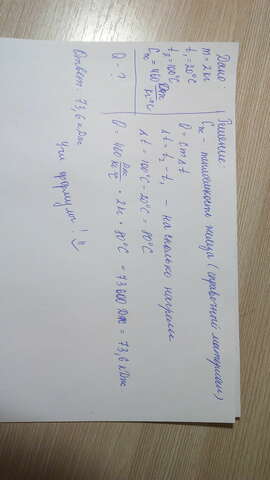 Дано:
m = 2 кг
t₁ = 20°C
t₂ = 100°C
Cж = 460 Дж/кг°C
Q - ?
Решение
Cж - теплоемкость железа (справочный материал)
Q = cmΔt
Δt = t₂ - t₁ - на сколько нагрели
Δt = 100°C - 20°C = 80°C
Q = 460 Дж/кг°C · 2 кг · 80°C = 73 600 Дж = 73,6 кДж
Ответ: 73,6 кДж
Учи формулы!